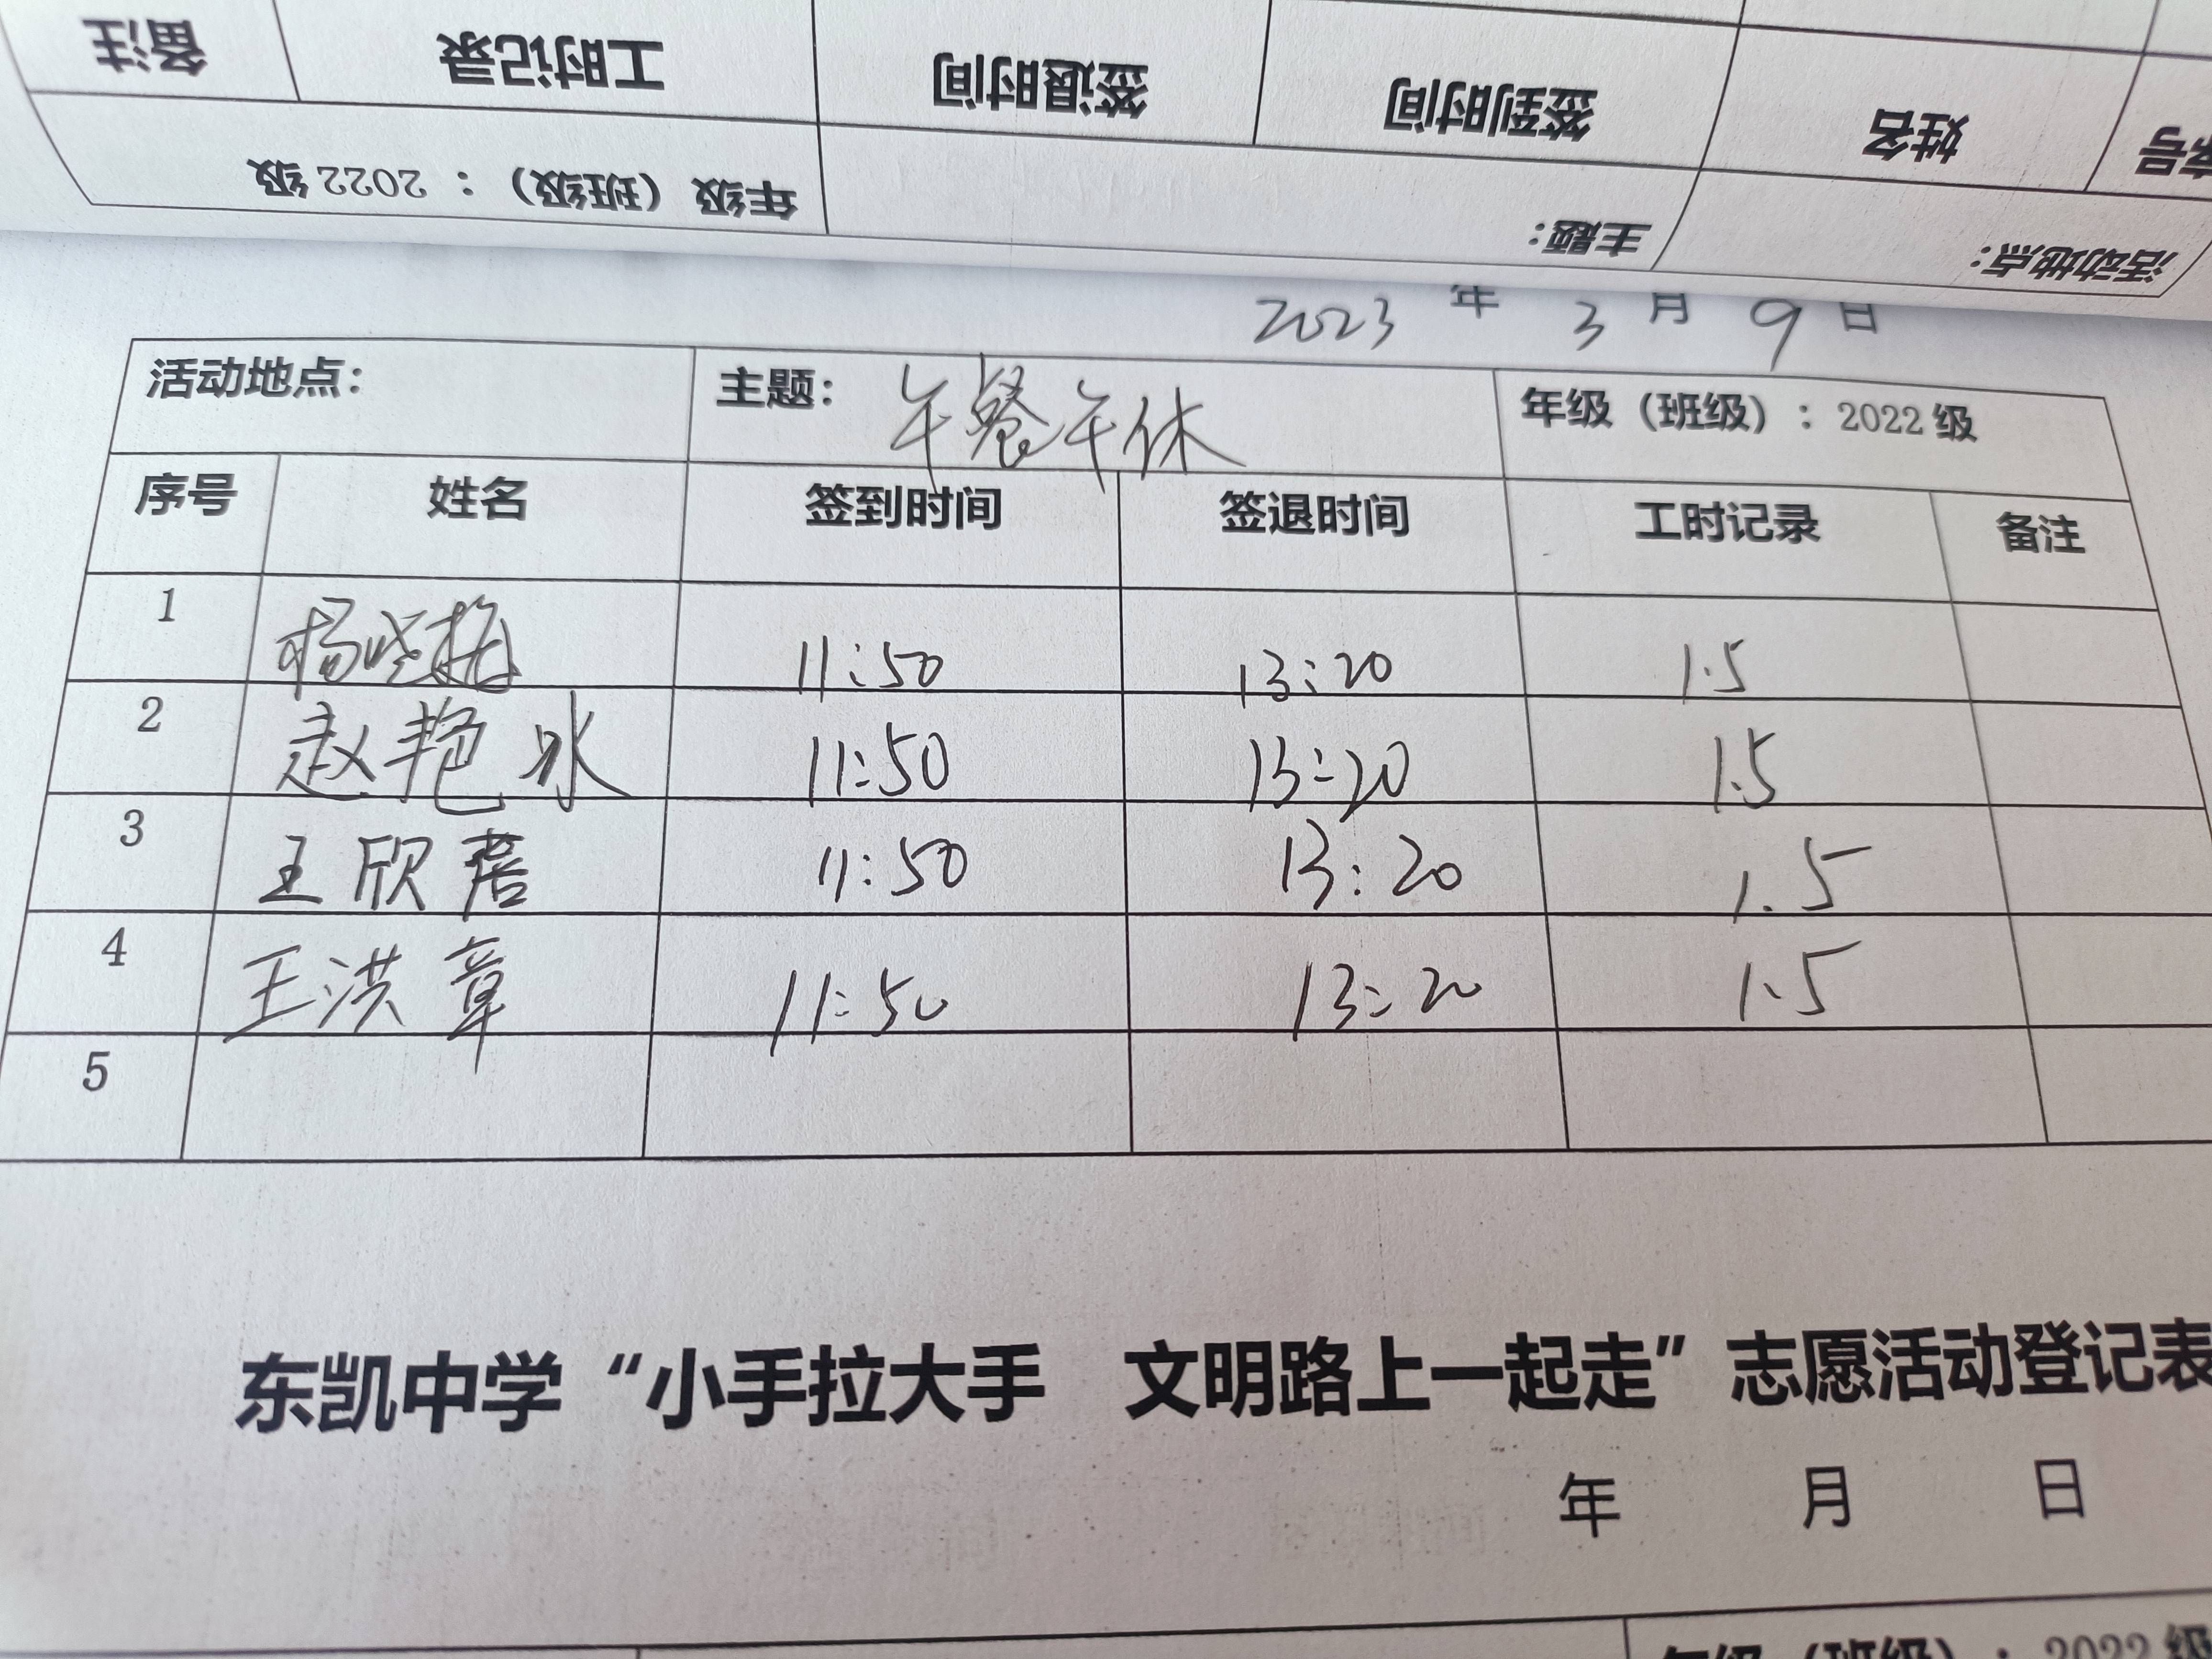 备注 工时记录 签退时间 签到时间 姓名 序号
年级（班级）：2022级 主题： 活动地点：
2023 年 3 月 9 日
活动地点： 主题： 午餐午休 年级（班级）：2022级
序号 姓名 签到时间 签退时间 工时记录 备注
1 杨 11:50 13:20 1.5
2 赵艳水 11:50 13:20 1.5
3 王欣蓓 11:50 13:20 1.5
4 王洪章 11:50 13:20 1.5
5
东凯中学“小手拉大手 文明路上一起走”志愿活动登记表
年 月 日
年级（班级）：2022级